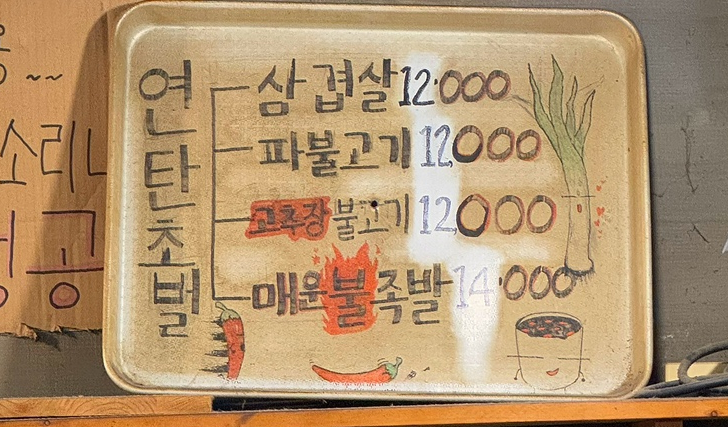 연탄초벌
삼겹살 12.000
파불고기 12,000
고추장불고기 12000
매운불족발 14.000
소리
공